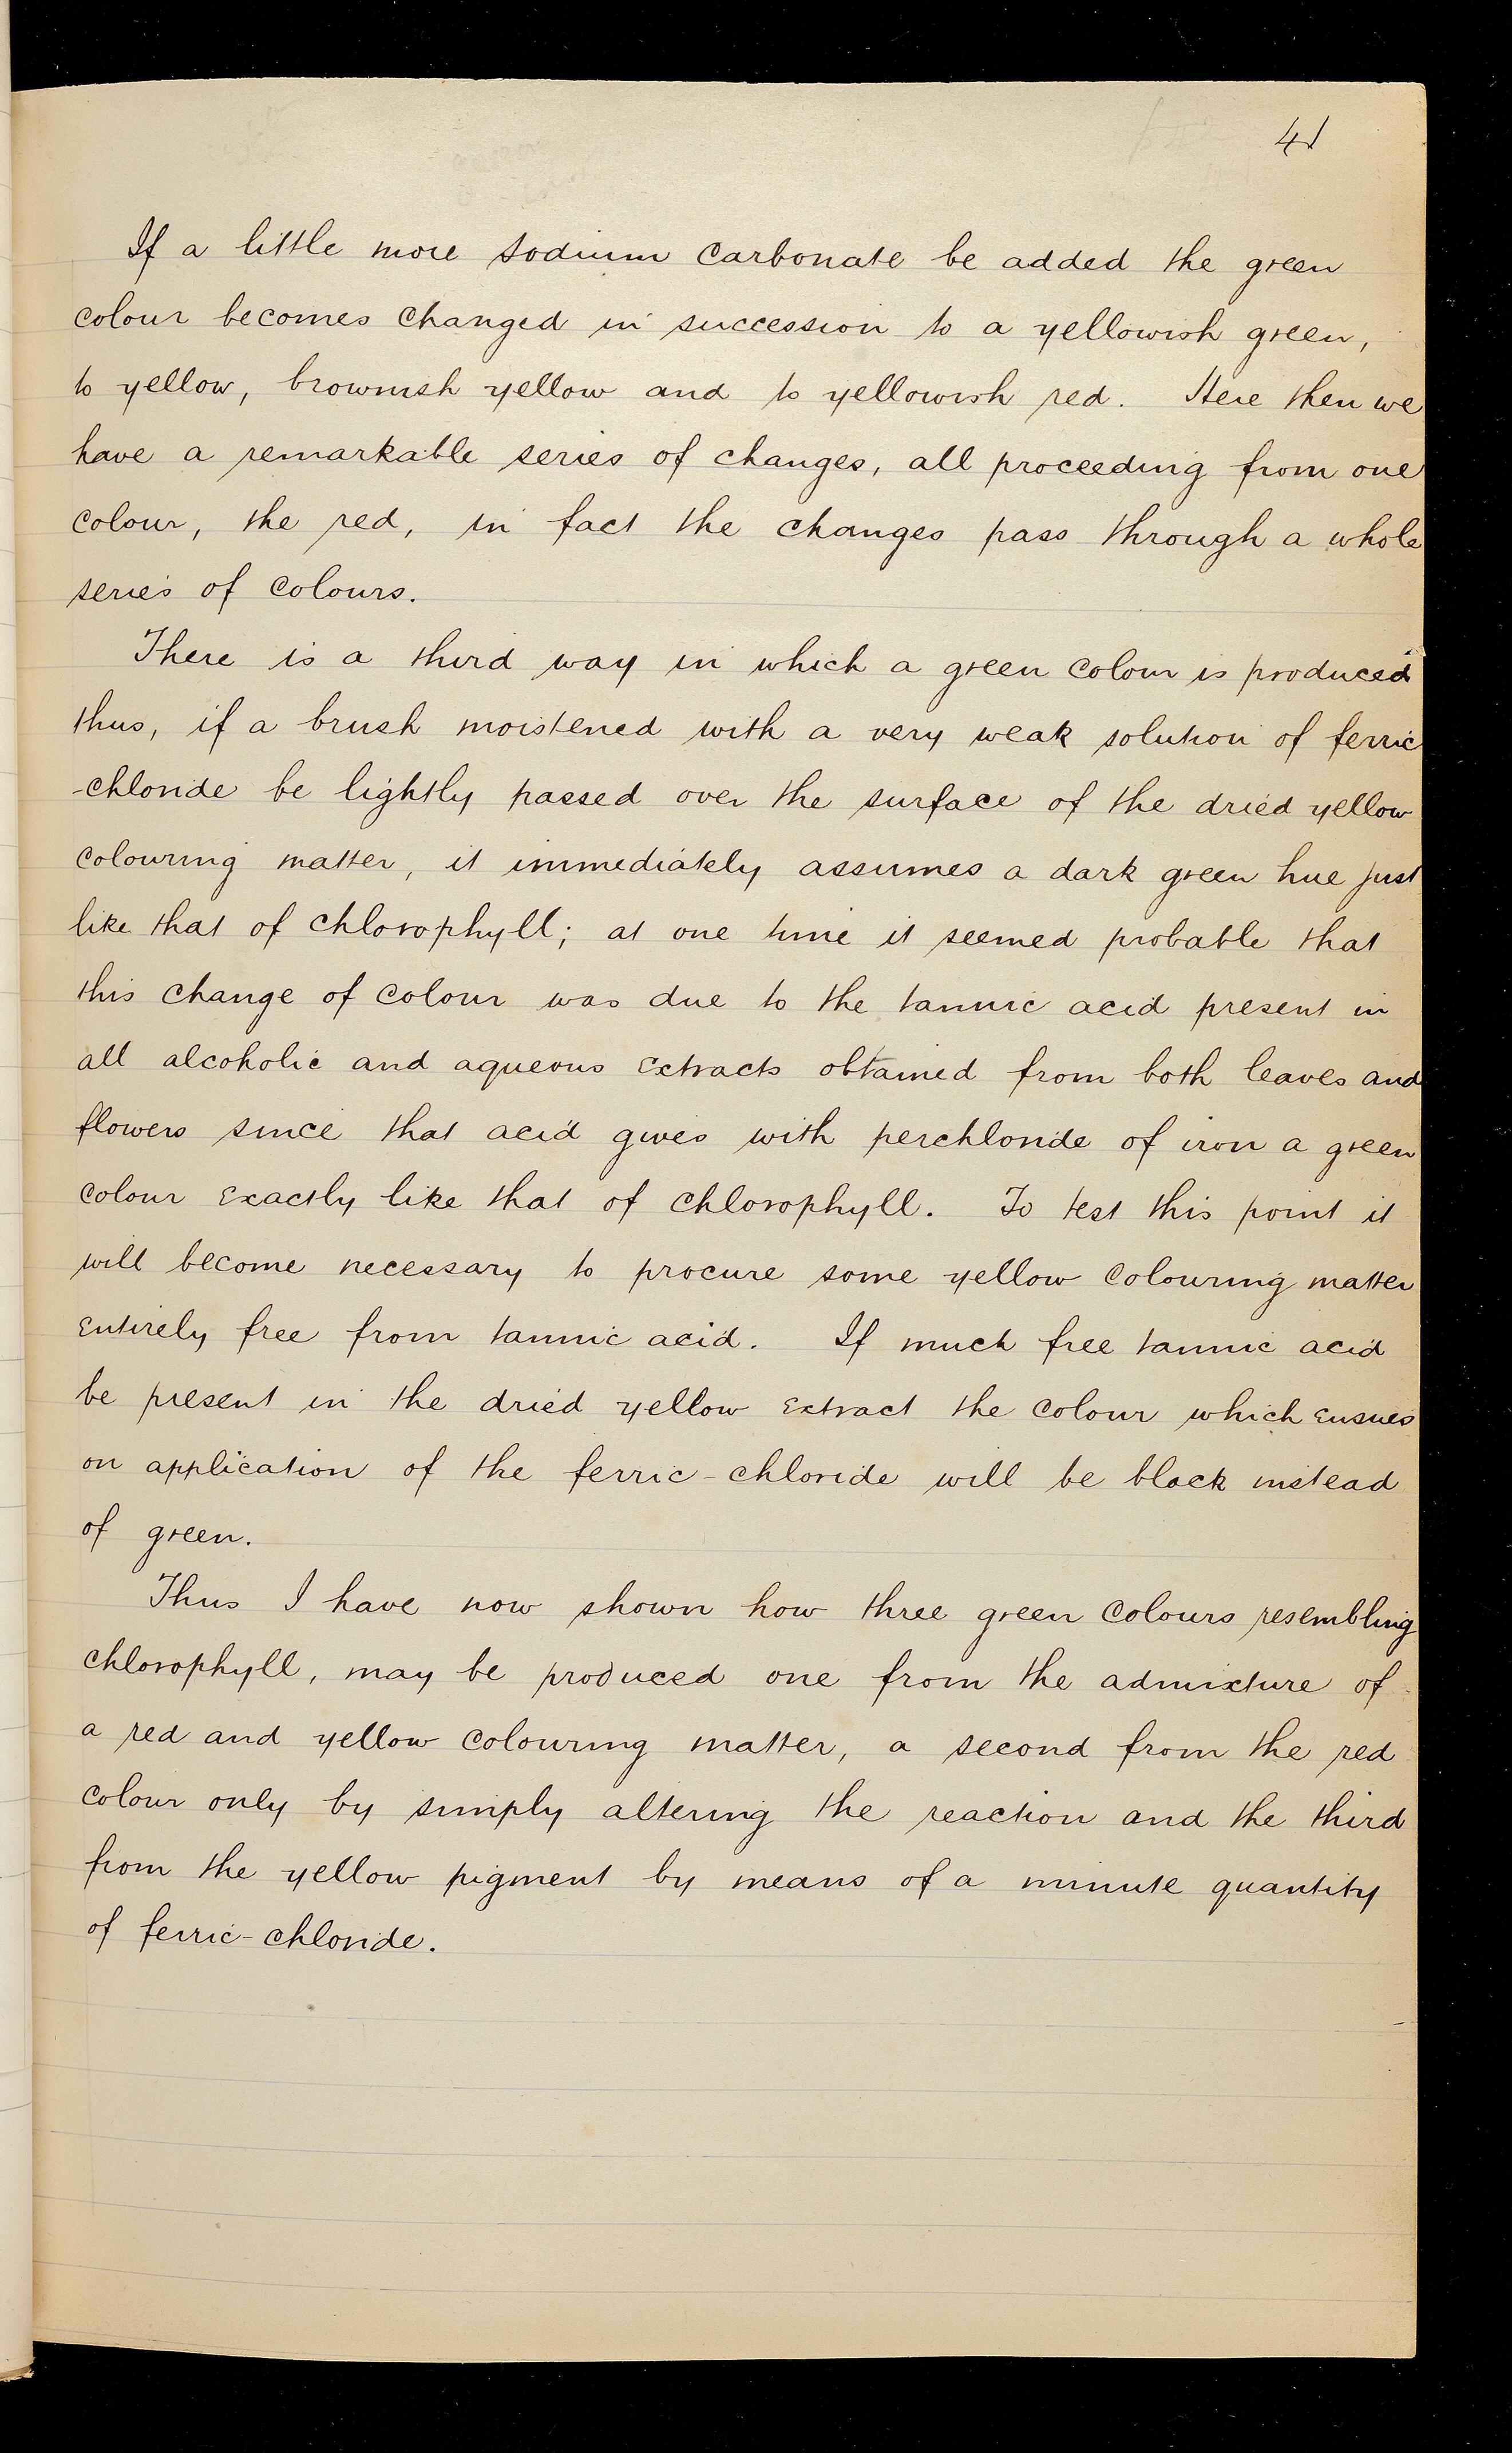 41
If a little more sodium carbonate be added the green
colour becomes changed in succession to a yellowish green,
to yellow, brownish yellow and to yellowish red. Here then we
have a remarkable series of changes, all proceeding from one
colour, the red, in fact the changes pass through a whole
series of colours.
There is a third way in which a green colour is produced
thus, if a brush moistened with a very weak solution of ferric
-chloride be lightly passed over the surface of the dried yellow
colouring matter, it immediately assumes a dark green hue just
like that of chlorophyll; at one time it seemed probable that
this change of colour was due to the tannic acid present in
all alcoholic and aqueous extracts obtained from both leaves and
flowers since that acid gives with perchloride of iron a green
colour exactly like that of chlorophyll. To test this point it
will become necessary to procure some yellow colouring matter
entirely free from tannic acid. If much free tannic acid
be present in the dried yellow extract the colour which ensues
on application of the ferric-chloride will be black instead
of green.
Thus I have now shown how three green colours resembling
chlorophyll, may be produced one from the admixture of
a red and yellow colouring matter, a second from the red
colour only by simply altering the reaction and the third
from the yellow pigment by means of a minute quantity
of ferric-chloride.